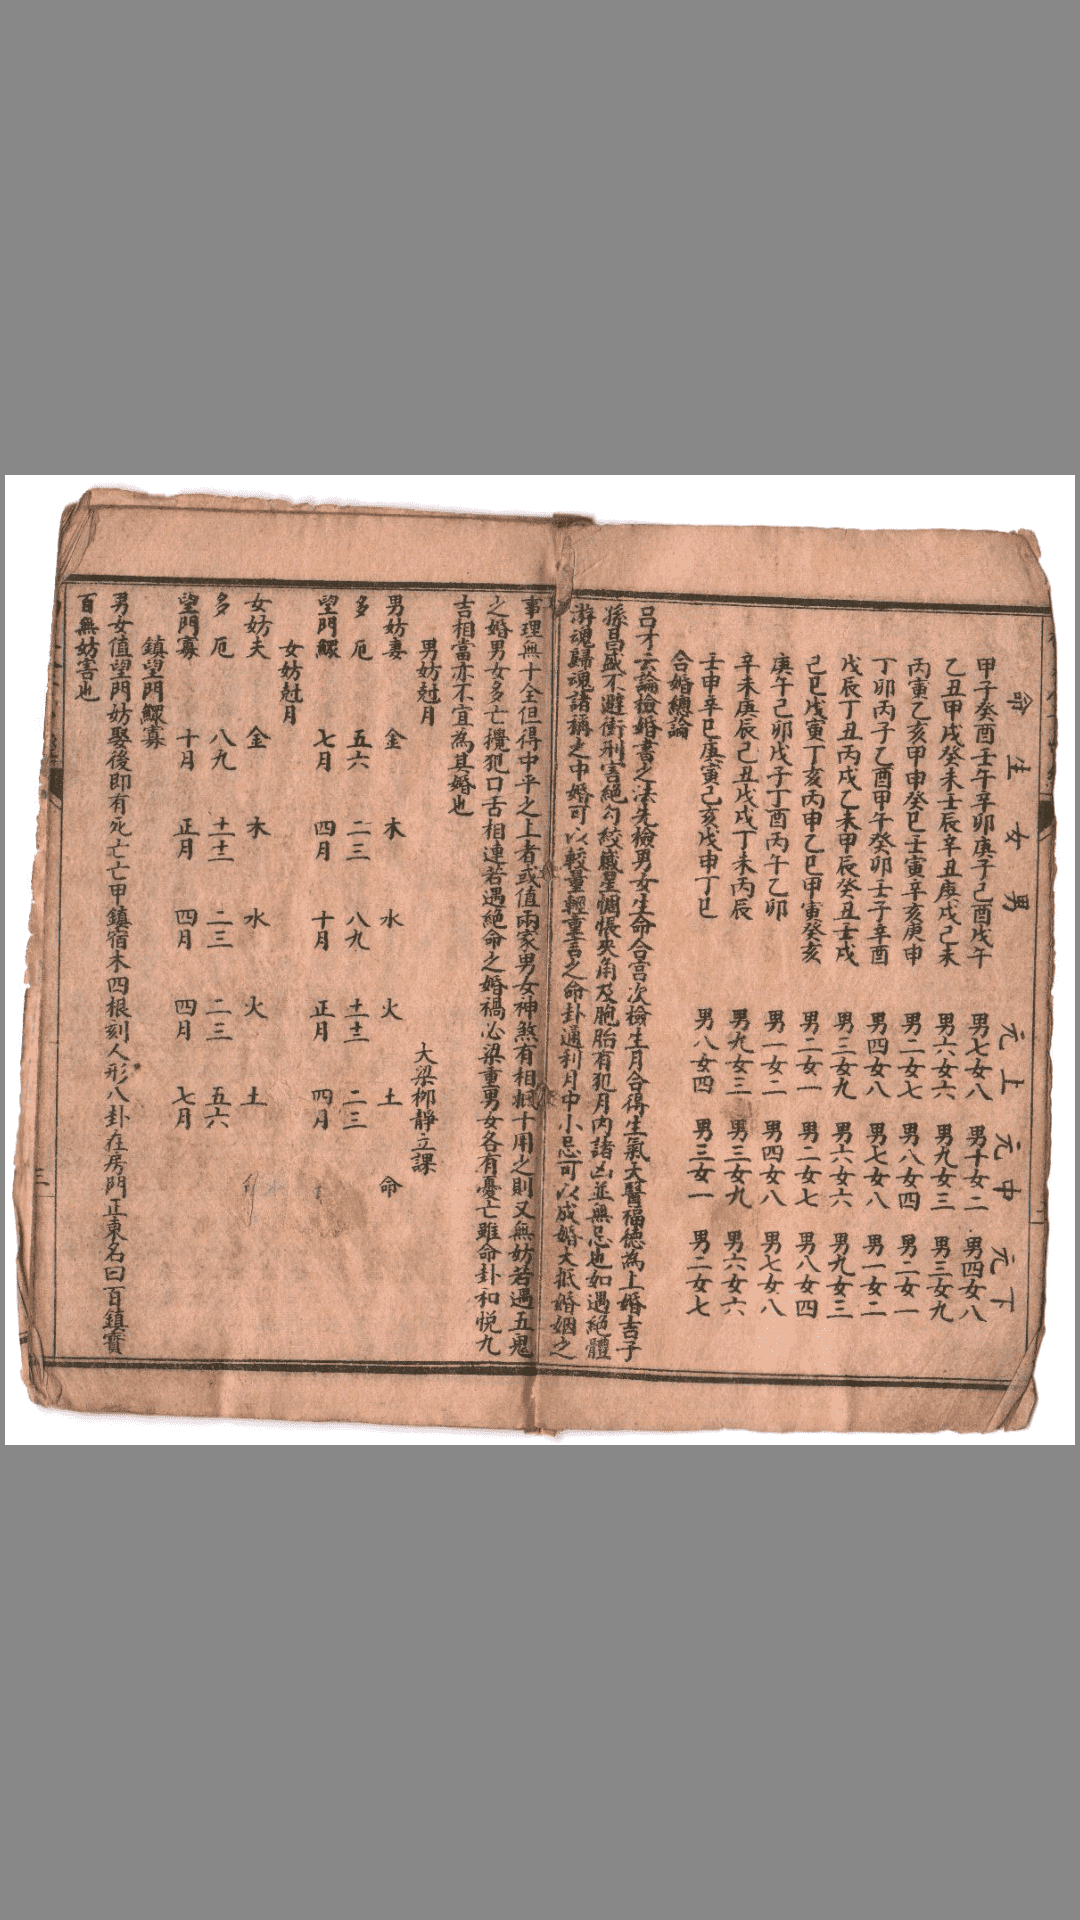 男女生命
上元
中元
下元
甲子癸酉壬午辛卯庚子己酉戊午 男七女八 男十女二 男四女八
乙丑甲戌癸未壬辰辛丑庚戌己未 男六女六 男九女三 男三女九
丙寅乙亥甲申癸巳壬寅辛亥庚申 男二女七 男八女四 男二女一
丁卯丙子乙酉甲午癸卯壬子辛酉 男四女八 男七女八 男一女二
戊辰丁丑丙戌乙未甲辰癸丑壬戌 男三女九 男六女六 男九女三
己巳戊寅丁亥丙申乙巳甲寅癸亥 男二女一 男二女七 男八女四
庚午己卯戊子丁酉丙午乙卯 男一女二 男四女八 男七女八
辛未庚辰己丑戊戌丁未丙辰 男九女三 男三女九 男六女六
壬申辛巳庚寅己亥戊申丁巳 男八女四 男三女一 男二女七
合婚總論
呂才云論檢婚書之法先檢男女生命合宮次檢生月合得生氣天醫福德為上婚吉子
孫昌盛不避衝刑害絕勾絞歲星惆悵夾角及胞胎有犯月內諸凶並無忌也如遇絕體
游魂歸魂諸稱之中婚可以較量輕重言之命卦通利月中小忌可以成婚大抵婚姻之
事理無十全但得中平之上者或值兩家男女神煞有相抵十用之則又無妨若遇五鬼
之婚男女多亡攪犯口舌相連若遇絕命之婚禍必梁重男女各有憂亡雖命卦和悅九
吉相當亦不宜為其婚也
男妨尅月 大梁柳靜立課
男妨妻 金 木 水 火 土 命
多厄 五六 二三 八九 十一十二 二三
望門鰥 七月 四月 十月 正月 四月
女妨尅月
女妨夫 金 木 水 火 土
多厄 八九 十一十二 二三 二三 五六
望門寡 十月 正月 四月 四月 七月
鎮望門鰥寡
男女值望門妨娶後即有死亡亡甲鎮宿木四根刻人形八卦在房門正東名曰百鎮寶
百無妨害也
三